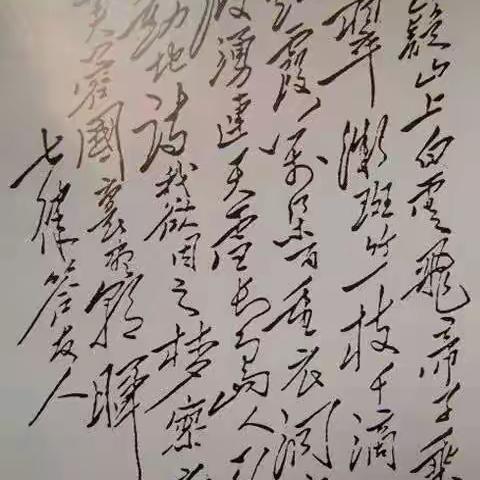 嶷山上白雲飛帝子乘
翠微斑竹一枝千滴
霞萬朵百重衣洞
波湧連天雪長島人
動地詩我欲因之梦寥
芙蓉國裏盡朝暉
七律答友人